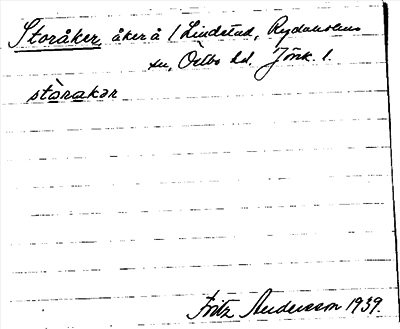 Storåker åker å Lindstad, Rydaholms
sn, Östbo hd. Jönk. l.
stòrakər
Fritz Andersson 1939.